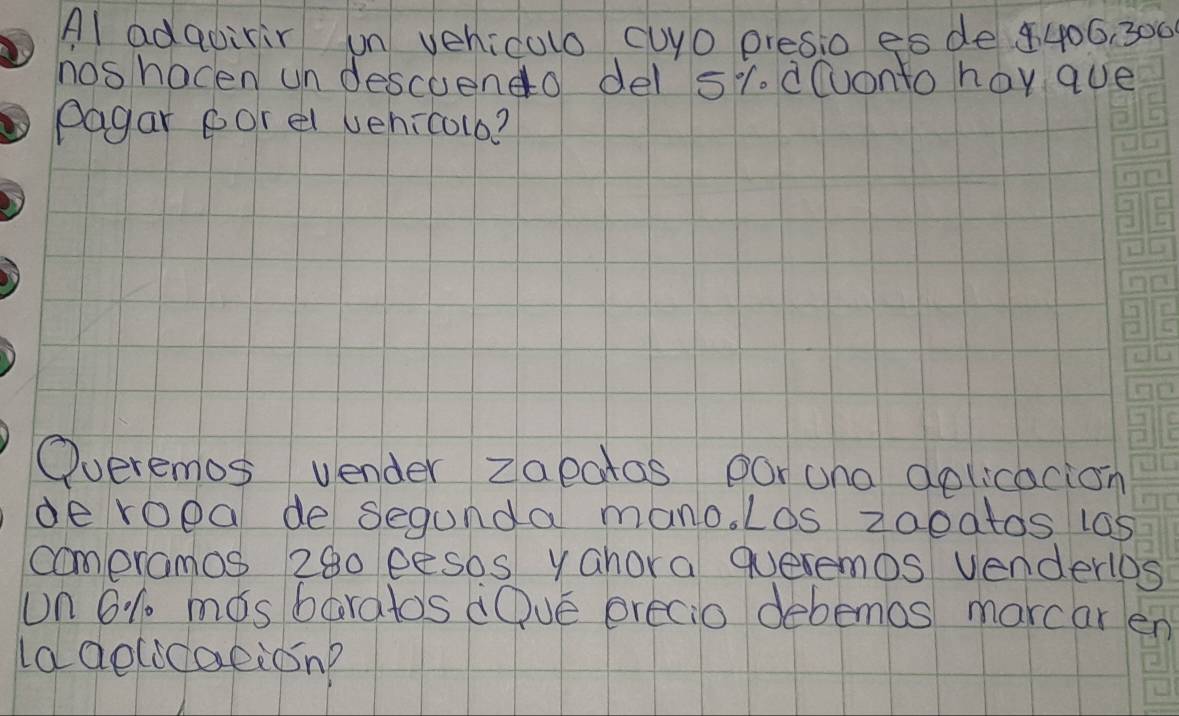 Al adquirir un vehiculo cuyo presio es de $406,300
nos hacen un descuento del 5% ¿Cuanto hay que
pagar por el vehiculo?
Queremos vender zapatos por una aplicacion
de ropa de segunda mano. Los zapatos los
compramos 280 pesos y ahora queremos venderlos
un 6% mas baratos ¿Qué precio debemos marcar en
la aplicación?